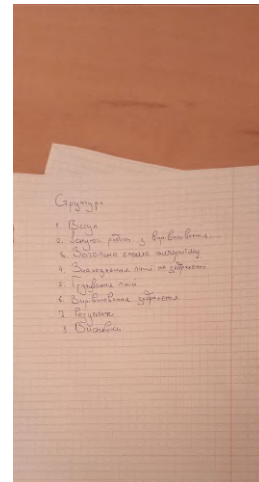 Структура
1. Вступ
2. Існуючі роботи з вирівнювання...
3. Загальна схема алгоритму
4. Знаходження ліній на зображенні
5. Групування ліній
6. Вирівнювання зображення
7. Результати
8. Висновки